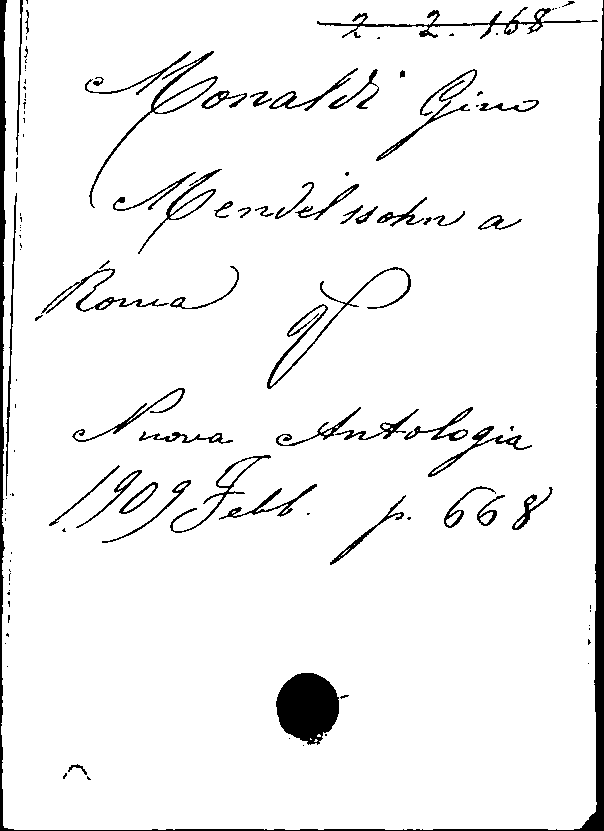 2. 2. 168
Monaldi Gino
Mendelssohn a
Roma
Nuova Antologia
1909 Febb. p. 668